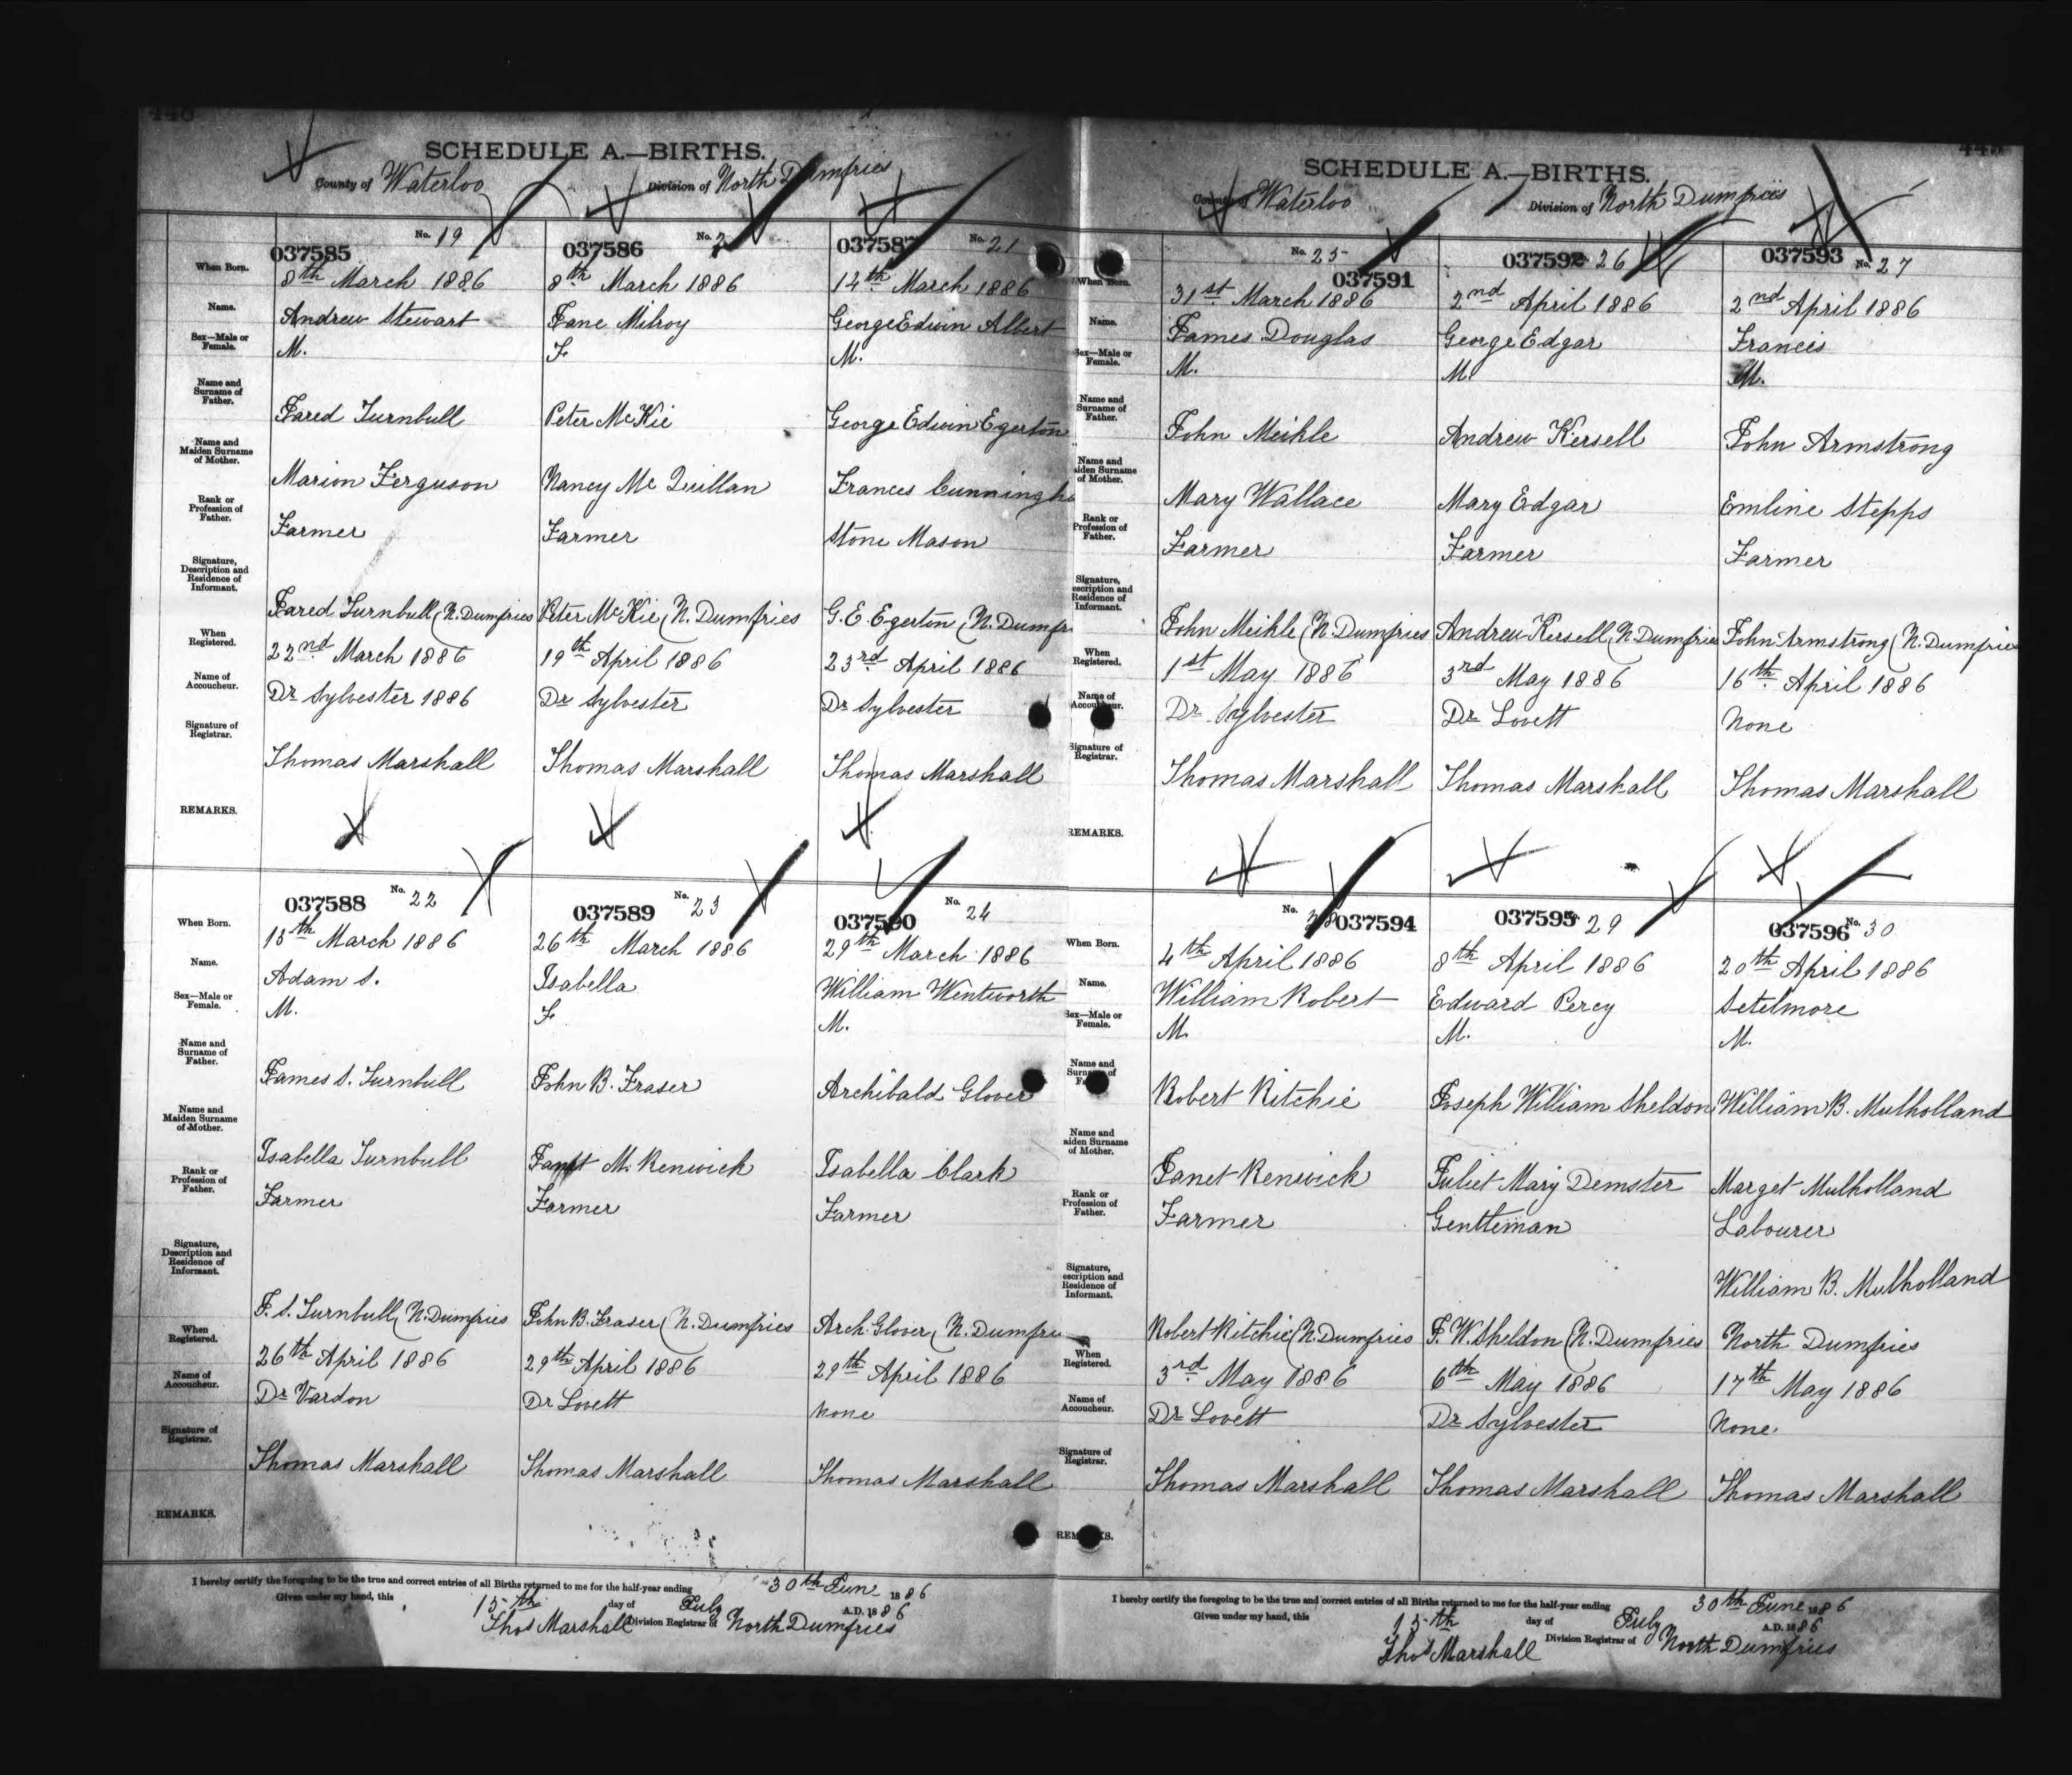 SCHEDULE A.—BIRTHS.
County of Waterloo Division of North Dumfries
037585 No. 19
When Born. 8th March 1886
Name. Andrew Stewart
Sex—Male or Female. M.
Name and Surname of Father. Jared Turnbull
Name and Maiden Surname of Mother. Marion Ferguson
Rank or Profession of Father. Farmer
Signature, Description and Residence of Informant. Jared Turnbull (N. Dumfries
When Registered. 22nd March 1886
Name of Accoucheur. Dr Sylvester 1886
Signature of Registrar. Thomas Marshall
REMARKS.
037586 No. 2
8th March 1886
Jane Milroy
F
Peter McKie
Nancy Mc Quillan
Farmer
Peter McKie (N. Dumfries
19th April 1886
Dr Sylvester
Thomas Marshall
037587 No. 21
14th March 1886
George Edwin Albert
M.
George Edwin Egerton
Frances Cunningh
Stone Mason
G. E Egerton (N. Dumfr
23rd April 1886
Dr Sylvester
Thomas Marshall
037588 No. 22
When Born. 15th March 1886
Name. Adam S.
Sex—Male or Female. M.
Name and Surname of Father. James S. Turnbull
Name and Maiden Surname of Mother. Isabella Turnbull
Rank or Profession of Father. Farmer
Signature, Description and Residence of Informant. J. S. Turnbull (N. Dumfries
When Registered. 26th April 1886
Name of Accoucheur. Dr Vardon
Signature of Registrar. Thomas Marshall
REMARKS.
037589 No. 23
26th March 1886
Isabella
F
John B. Fraser
Janet M. Renwick
Farmer
John B. Fraser (N. Dumfries
29th April 1886
Dr Lovett
Thomas Marshall
037590 No. 24
29th March 1886
William Wentworth
M.
Archibald Glover
Isabella Clark
Farmer
Arch. Glover (N. Dumfri
29th April 1886
None
Thomas Marshall
I hereby certify the foregoing to be the true and correct entries of all Births returned to me for the half-year ending 30th June 1886
Given under my hand, this 15th day of July A.D. 1886
Thos Marshall Division Registrar of North Dumfries
SCHEDULE A.—BIRTHS.
County of Waterloo Division of North Dumfries
No. 25
037591
When Born. 31st March 1886
Name. James Douglas
Sex—Male or Female. M.
Name and Surname of Father. John Meikle
Name and aiden Surname of Mother. Mary Wallace
Rank or Profession of Father. Farmer
Signature, escription and Residence of Informant. John Meikle (N. Dumfries
When Registered. 1st May 1886
Name of Accoucheur. Dr Sylvester
Signature of Registrar. Thomas Marshall
REMARKS.
037592 26
2nd April 1886
George Edgar
M.
Andrew Kersell
Mary Edgar
Farmer
Andrew Kersell (N. Dumfries
3rd May 1886
Dr Lovett
Thomas Marshall
037593 No. 27
2nd April 1886
Francis
M.
John Armstrong
Emline Stepps
Farmer
John Armstrong (N. Dumfries
16th April 1886
None
Thomas Marshall
No. 28 037594
When Born. 4th April 1886
Name. William Robert
Sex—Male or Female. M.
Name and Surname of Father. Robert Ritchie
Name and aiden Surname of Mother. Janet Renwick
Rank or Profession of Father. Farmer
Signature, escription and Residence of Informant. Robert Ritchie (N. Dumfries
When Registered. 3rd May 1886
Name of Accoucheur. Dr Lovett
Signature of Registrar. Thomas Marshall
REMARKS.
037595 29
8th April 1886
Edward Percy
M.
Joseph William Sheldon
Juliet Mary Demster
Gentleman
J. W. Sheldon (N. Dumfries
6th May 1886
Dr Sylvester
Thomas Marshall
037596 No. 30
20th April 1886
Setelmore
M.
William B. Mulholland
Marget Mulholland
Labourer
William B. Mulholland
North Dumfries
17th May 1886
None.
Thomas Marshall
I hereby certify the foregoing to be the true and correct entries of all Births returned to me for the half-year ending 30th June 1886
Given under my hand, this 15th day of July A.D. 1886
Thos Marshall Division Registrar of North Dumfries